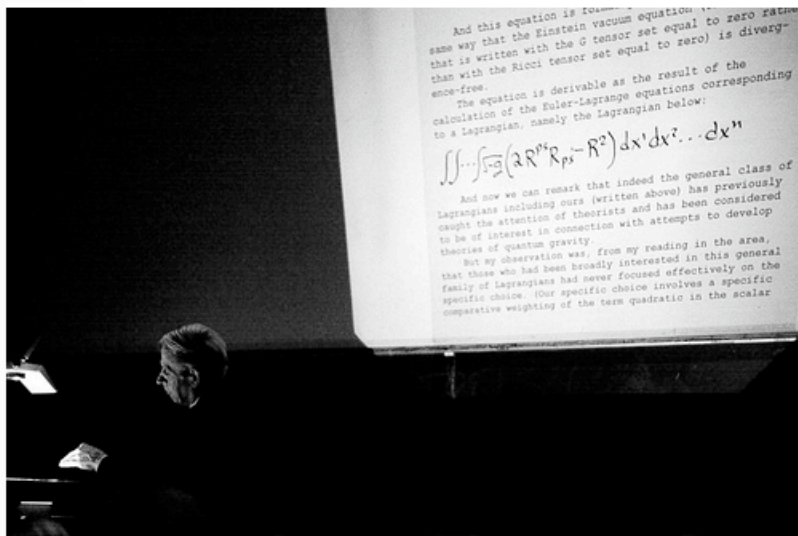 And this equation is
same way that the Einstein vacuum equation
that is written with the G tensor set equal to zero rathe
than with the Ricci tensor set equal to zero) is diverg-
ence-free.
The equation is derivable as the result of the
calculation of the Euler-Lagrange equations corresponding
to a Lagrangian, namely the Lagrangian below:
∫∫...∫√-g (2R^ps R_ps - R²) dx¹ dx² ... dxⁿ
And now we can remark that indeed the general class of
Lagrangians including ours (written above) has previously
caught the attention of theorists and has been considered
to be of interest in connection with attempts to develop
theories of quantum gravity.
But my observation was, from my reading in the area,
that those who had been broadly interested in this general
family of Lagrangians had never focused effectively on the
specific choice. (Our specific choice involves a specific
comparative weighting of the term quadratic in the scalar